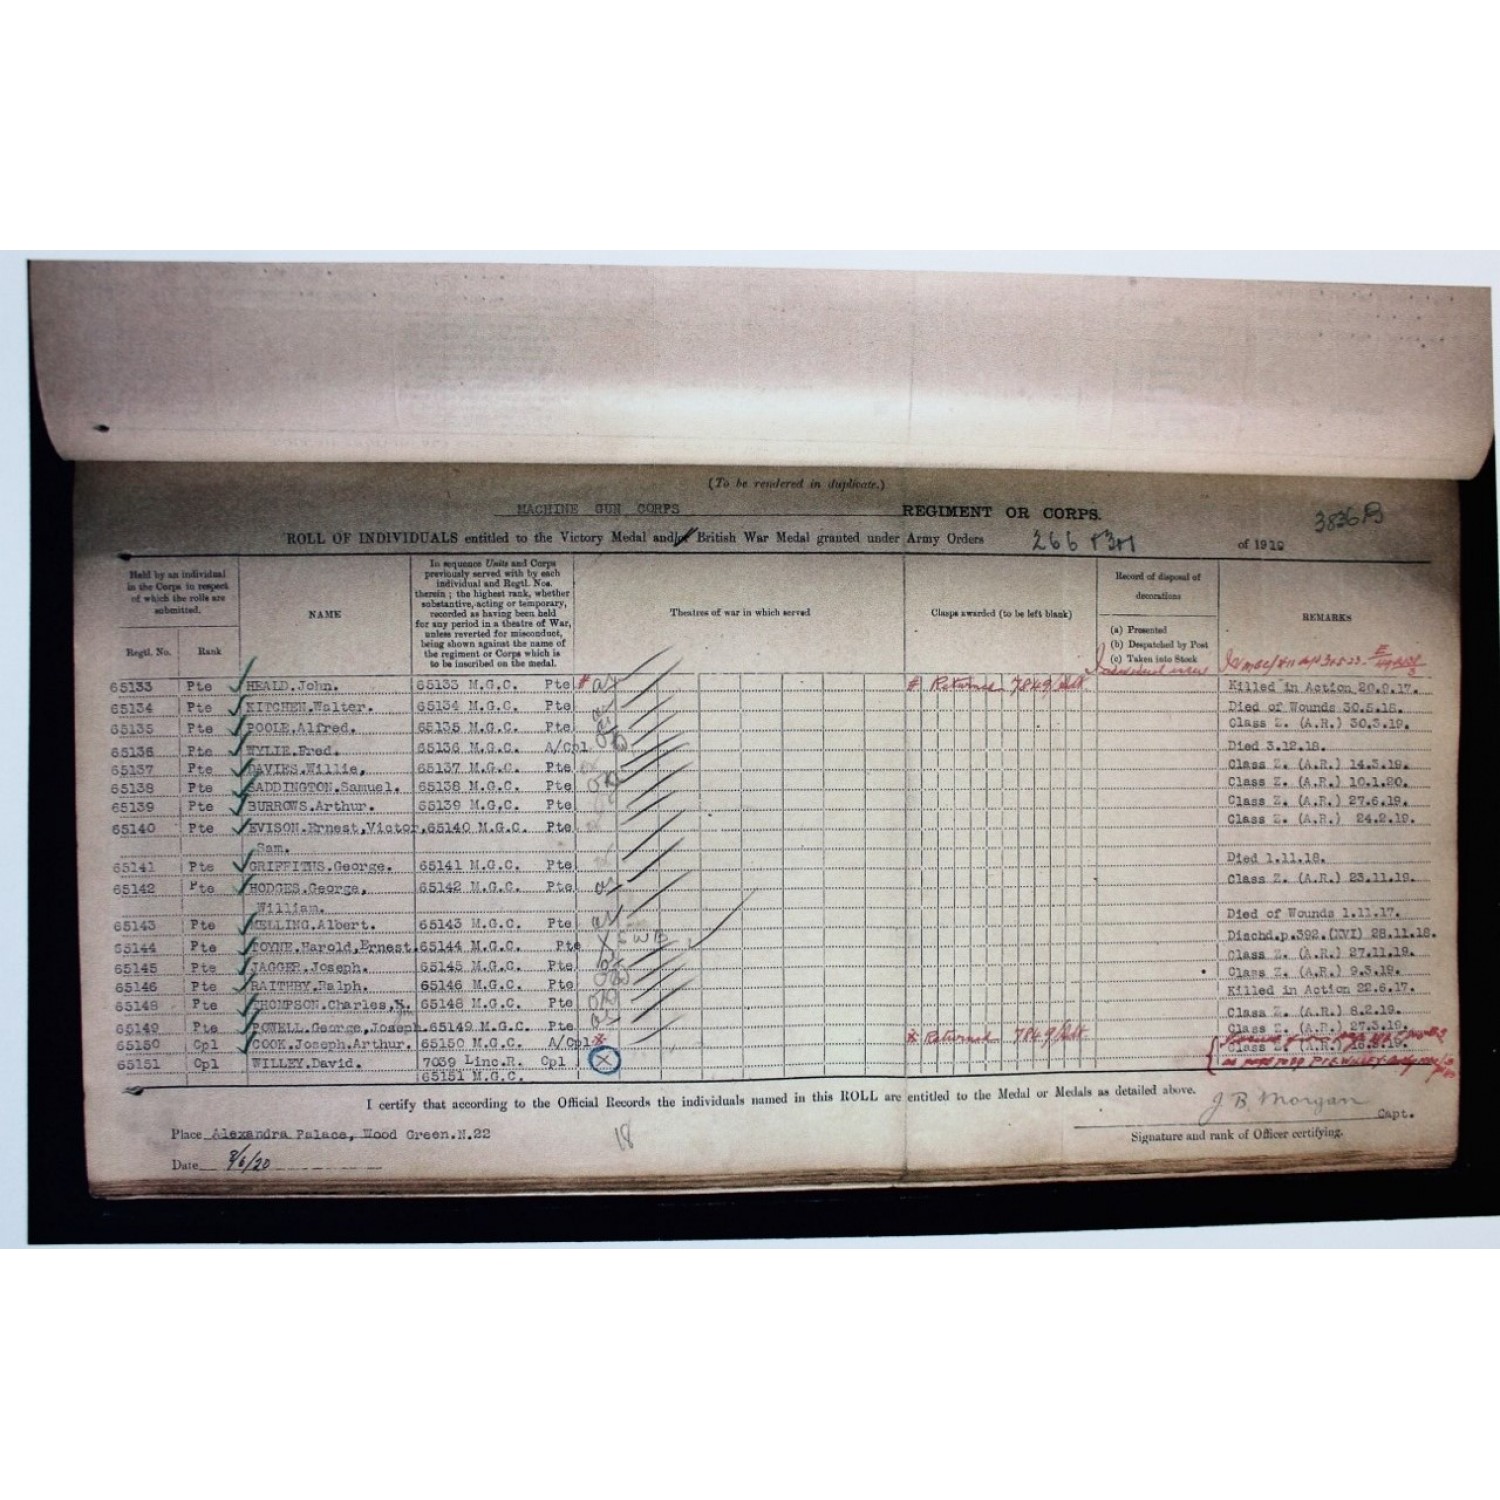 (To be rendered in duplicate.)
MACHINE GUN CORPS REGIMENT OR CORPS.
3836B
ROLL OF INDIVIDUALS entitled to the Victory Medal and/or British War Medal granted under Army Orders 266 + 301 of 1919
Held by an individual in the Corps in respect of which the rolls are submitted.
Regtl. No. Rank
NAME
In sequence Units and Corps previously served with by each individual and Regtl. Nos. therein; the highest rank, whether substantive, acting or temporary, recorded as having been held for any period in a theatre of War, unless reverted for misconduct, being shown against the name of the regiment or Corps which is to be inscribed on the medal.
Theatres of war in which served
Clasps awarded (to be left blank)
Record of disposal of decorations
(a) Presented
(b) Despatched by Post
(c) Taken into Stock
REMARKS
65133 Pte HEALD.John. 65133 M.G.C. Pte # Returned 7849/Adt Killed in Action 20.9.17.
65134 Pte KITCHEN.Walter. 65134 M.G.C. Pte Died of Wounds 30.5.18.
65135 Pte POOLE.Alfred. 65135 M.G.C. Pte Class Z. (A.R.) 30.3.19.
65136 Pte WYLIE.Fred. 65136 M.G.C. A/Cpl Died 3.12.18.
65137 Pte DAVIES.Willie, 65137 M.G.C. Pte Class Z. (A.R.) 14.3.19.
65138 Pte SADDINGTON.Samuel. 65138 M.G.C. Pte Class Z. (A.R.) 10.1.20.
65139 Pte BURROWS.Arthur. 65139 M.G.C. Pte Class Z. (A.R.) 27.6.19.
65140 Pte EVISON.Ernest,Victor, 65140 M.G.C. Pte Class Z. (A.R.) 24.2.19.
Sam.
65141 Pte GRIFFITHS.George. 65141 M.G.C. Pte Died 1.11.18.
65142 Pte HODGES.George, 65142 M.G.C. Pte Class Z. (A.R.) 23.11.19.
William.
65143 Pte MELLING.Albert. 65143 M.G.C. Pte Died of Wounds 1.11.17.
65144 Pte TOYNE.Harold,Ernest. 65144 M.G.C. Pte X SWB Dischd.p.392.(XVI) 28.11.18.
65145 Pte JAGGER.Joseph. 65145 M.G.C. Pte Class Z. (A.R.) 27.11.19.
65146 Pte RAITHBY.Ralph. 65146 M.G.C. Pte Class Z. (A.R.) 9.3.19.
65148 Pte THOMPSON.Charles, 65148 M.G.C. Pte Killed in Action 22.6.17.
65149 Pte POWELL.George,Joseph. 65149 M.G.C. Pte Class Z. (A.R.) 8.2.19.
65150 Cpl COOK.Joseph.Arthur. 65150 M.G.C. A/Cpl * * Returned 7849/Adt Class Z. (A.R.) 27.3.19.
65151 Cpl WILLEY.David. 7039 Linc.R. Cpl X Class Z. (A.R.)
65151 M.G.C.
I certify that according to the Official Records the individuals named in this ROLL are entitled to the Medal or Medals as detailed above.
J B Morgan Capt.
Place Alexandra Palace, Wood Green.N.22
18
Signature and rank of Officer certifying.
Date /6/20